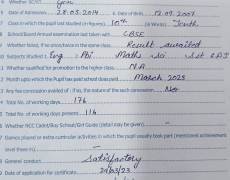 Whether SC/ST: Gen
Date of Admission: 28.03.2014 6. Date of Birth: 12.09.2007
Class in which the pupil last studied (in figures) 10th (in Words) Tenth
School/Board Annual examination last taken with CBSE
Whether failed, if the once/twice in the same class Result awaited
Subjects Studied: 1. Eng Maths Sci
Whether qualified for promotion to the higher class N.A
Month upto which the Pupil has paid school dues March 2023
Any Fee concession availed of: if so, the nature of such concession No
Total No. of working days 176
Total No. of working days present 116
Whether NCC Cadet/Boy Scout/Girl Guide (detail may be given)
Games played or extra curricular activities in which the pupil usually took part (mentioned achievement
level them in)
General conduct Satisfactory
Date of application for certificate 24/03/23